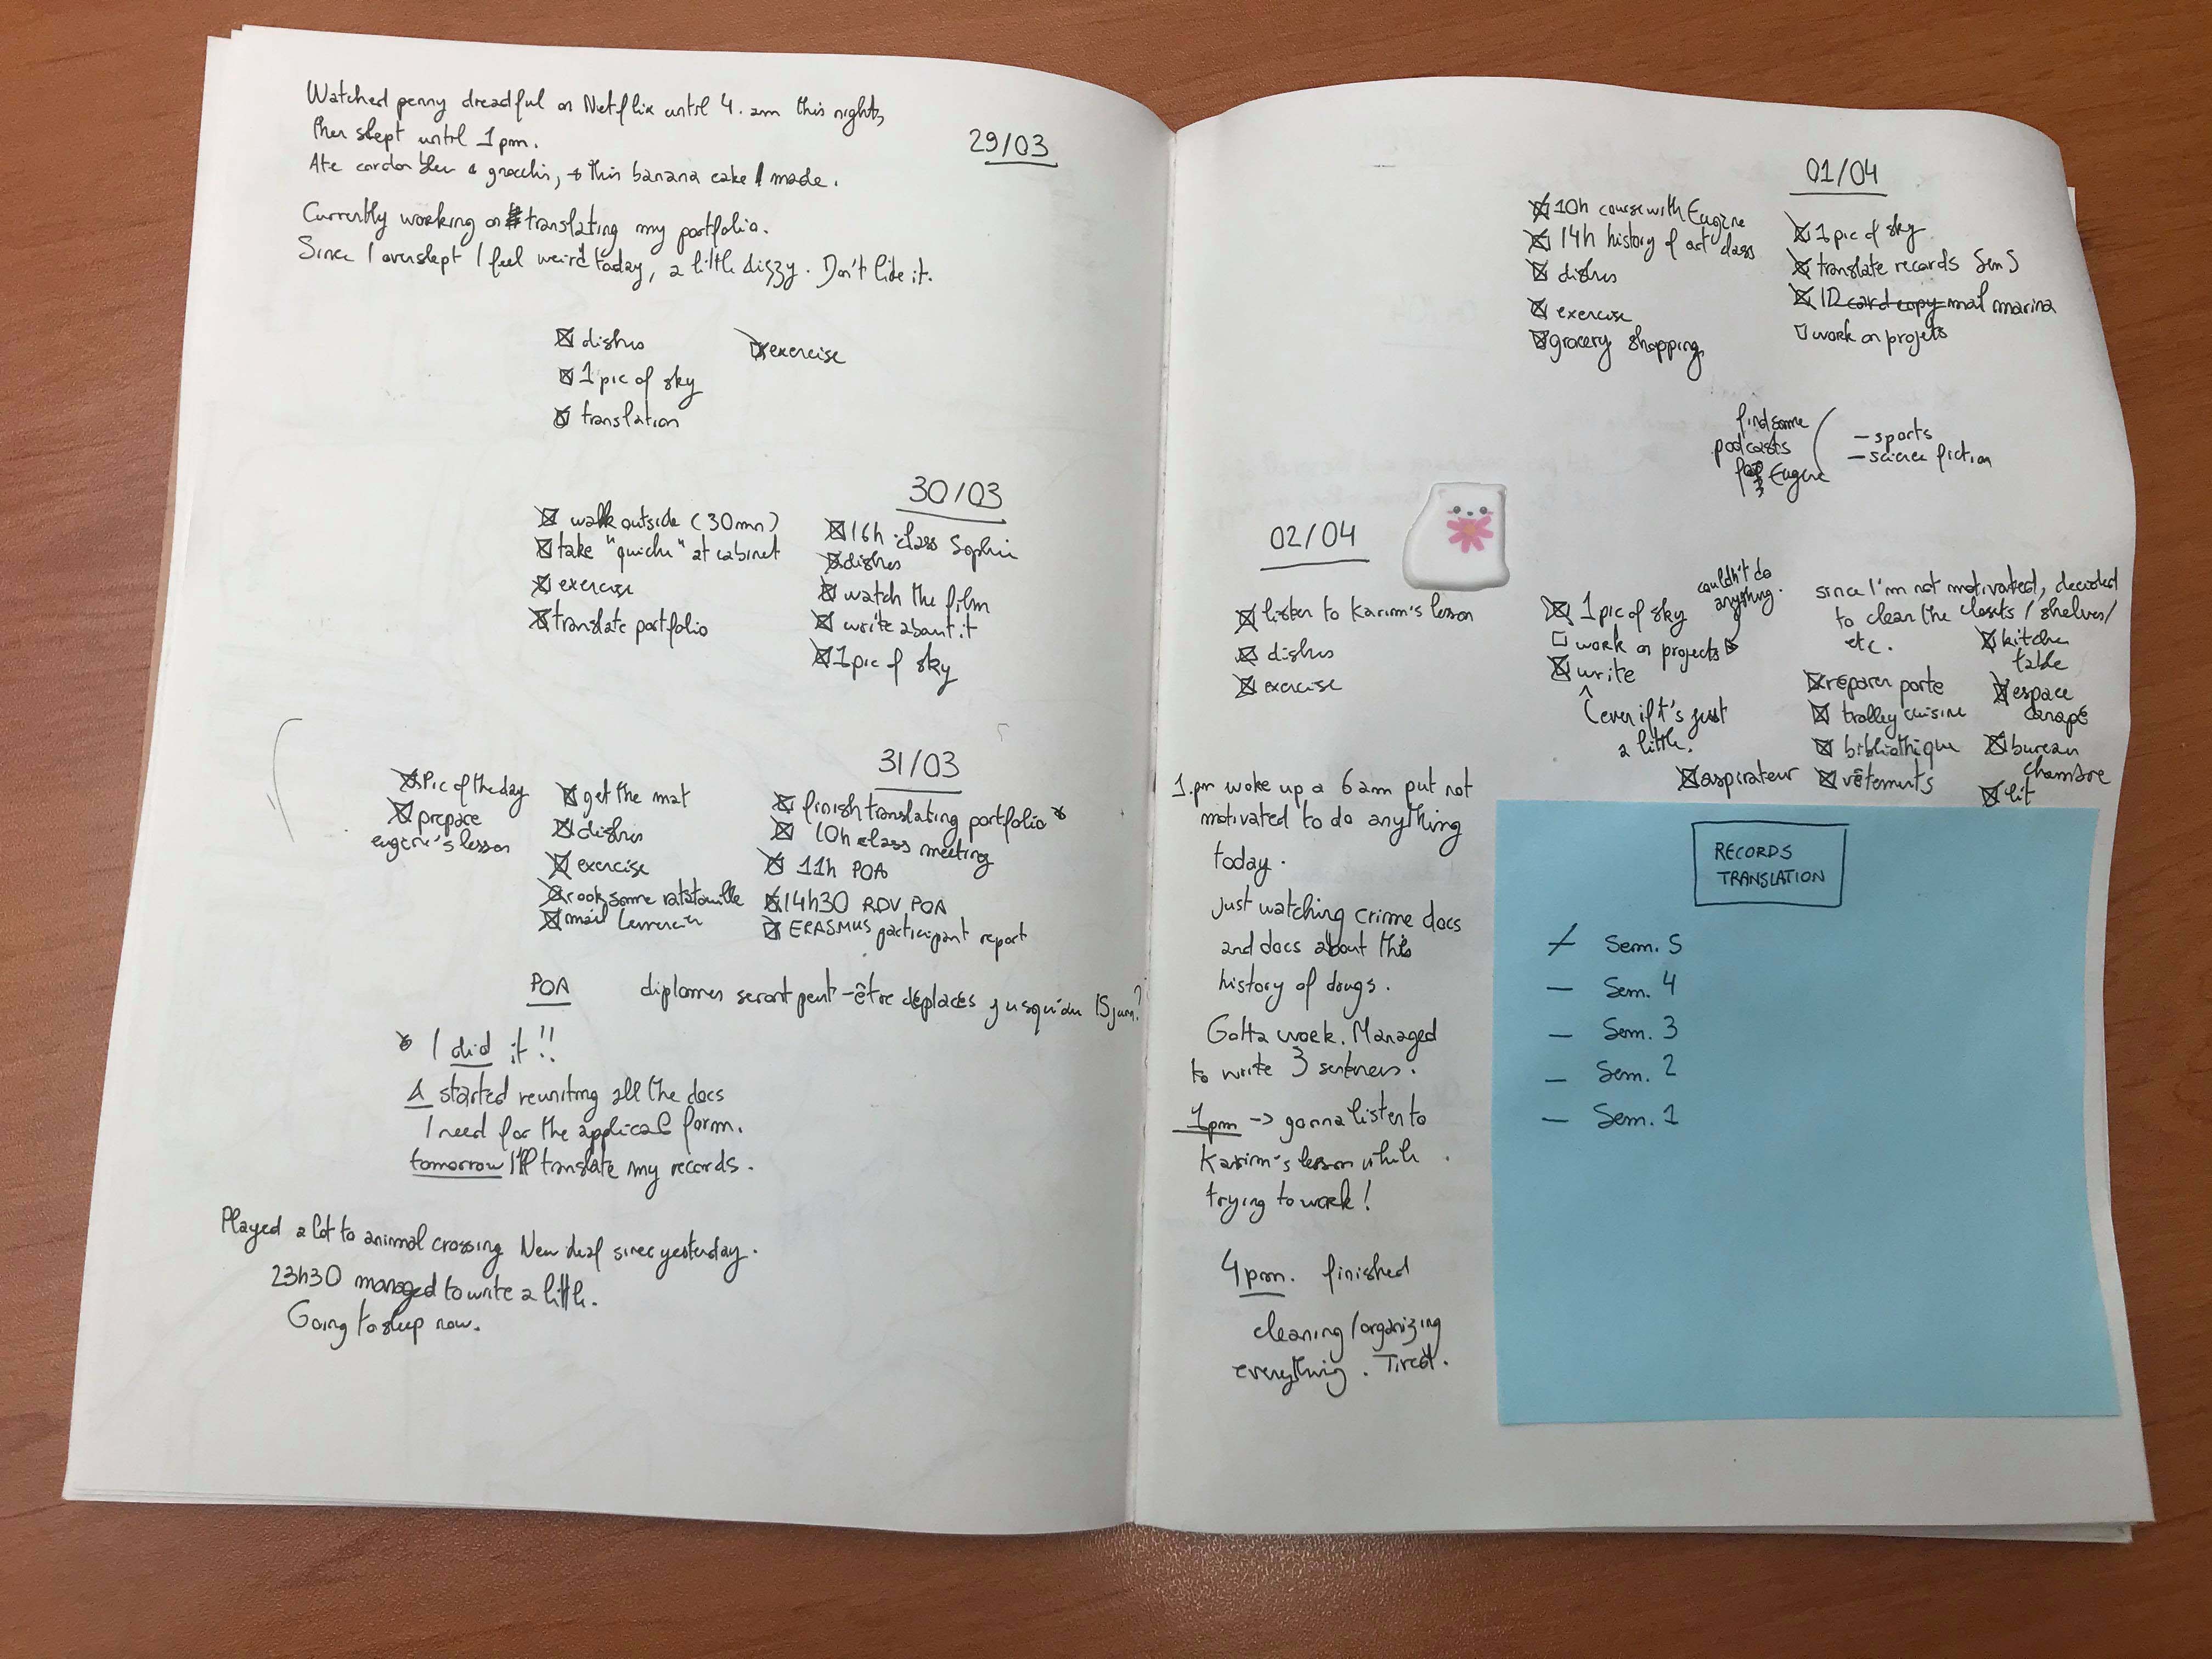 Watched penny dreadful on Netflix until 4. am this night,
then slept until 1pm.
Ate cordon bleu & gnocchis, & this banana cake I made.
29/03
Currently working on translating my portfolio.
Since I overslept I feel weird today, a little dizzy. Don't like it.
☒ dishes
☒ 1 pic of sky
☒ translation
☒ exercise
30/03
☒ walk outside (30mn)
☒ take "quiche" at cabinet
☒ exercise
☒ translate portfolio
☒ 16h class Sophie
☒ dishes
☒ watch the film
☒ write about it
☒ 1 pic of sky
31/03
☒ Pic of the day
☒ prepare
eugène's lesson
☒ get the mat
☒ dishes
☒ exercise
☒ cook some ratatouille
☒ mail
☒ finish translating portfolio *
☒ 10h class meeting
☒ 11h POA
☒ 14h30 RDV POA
☒ ERASMUS participant report
POA
diplomes seront peut-être déplacés jusqu'au 15 juin?
* I did it!!
& started reuniting all the docs
I need for the applicat° form.
tomorrow I'll translate my records.
Played a lot to animal crossing New leaf since yesterday.
23h30 managed to write a little.
Going to sleep now.
01/04
☒ 10h course with Eugène
☒ 14h history of art class
☒ dishes
☒ exercise
☒ grocery shopping
☒ 1 pic of sky
☒ translate records Sem 5
☒ ID card copy mail marina
☐ work on projets
find some
podcasts
for Eugène
- sports
- science fiction
02/04
☒ listen to Karim's lesson
☒ dishes
☒ exercise
☒ 1 pic of sky
☐ work on projects
☒ write
(even if it's just
a little.
couldn't do
anything.
since I'm not motivated, decided
to clean the closets / shelves /
etc.
☒ kitchen
table
☒ réparer porte
☒ trolley cuisine
☒ bibliothèque
☒ vêtements
☒ aspirateur
☒ espace
canapé
☒ bureau
chambre
☒ lit
1.pm woke up a 6am put not
motivated to do anything
today.
just watching crime docs
and docs about the
history of drugs.
Gotta work. Managed
to write 3 sentences.
1pm -> gonna listen to
Karim's lesson while
trying to work!
4pm. finished
cleaning/organizing
everything. Tired.
RECORDS
TRANSLATION
Sem. 5
— Sem. 4
— Sem. 3
— Sem. 2
— Sem. 1